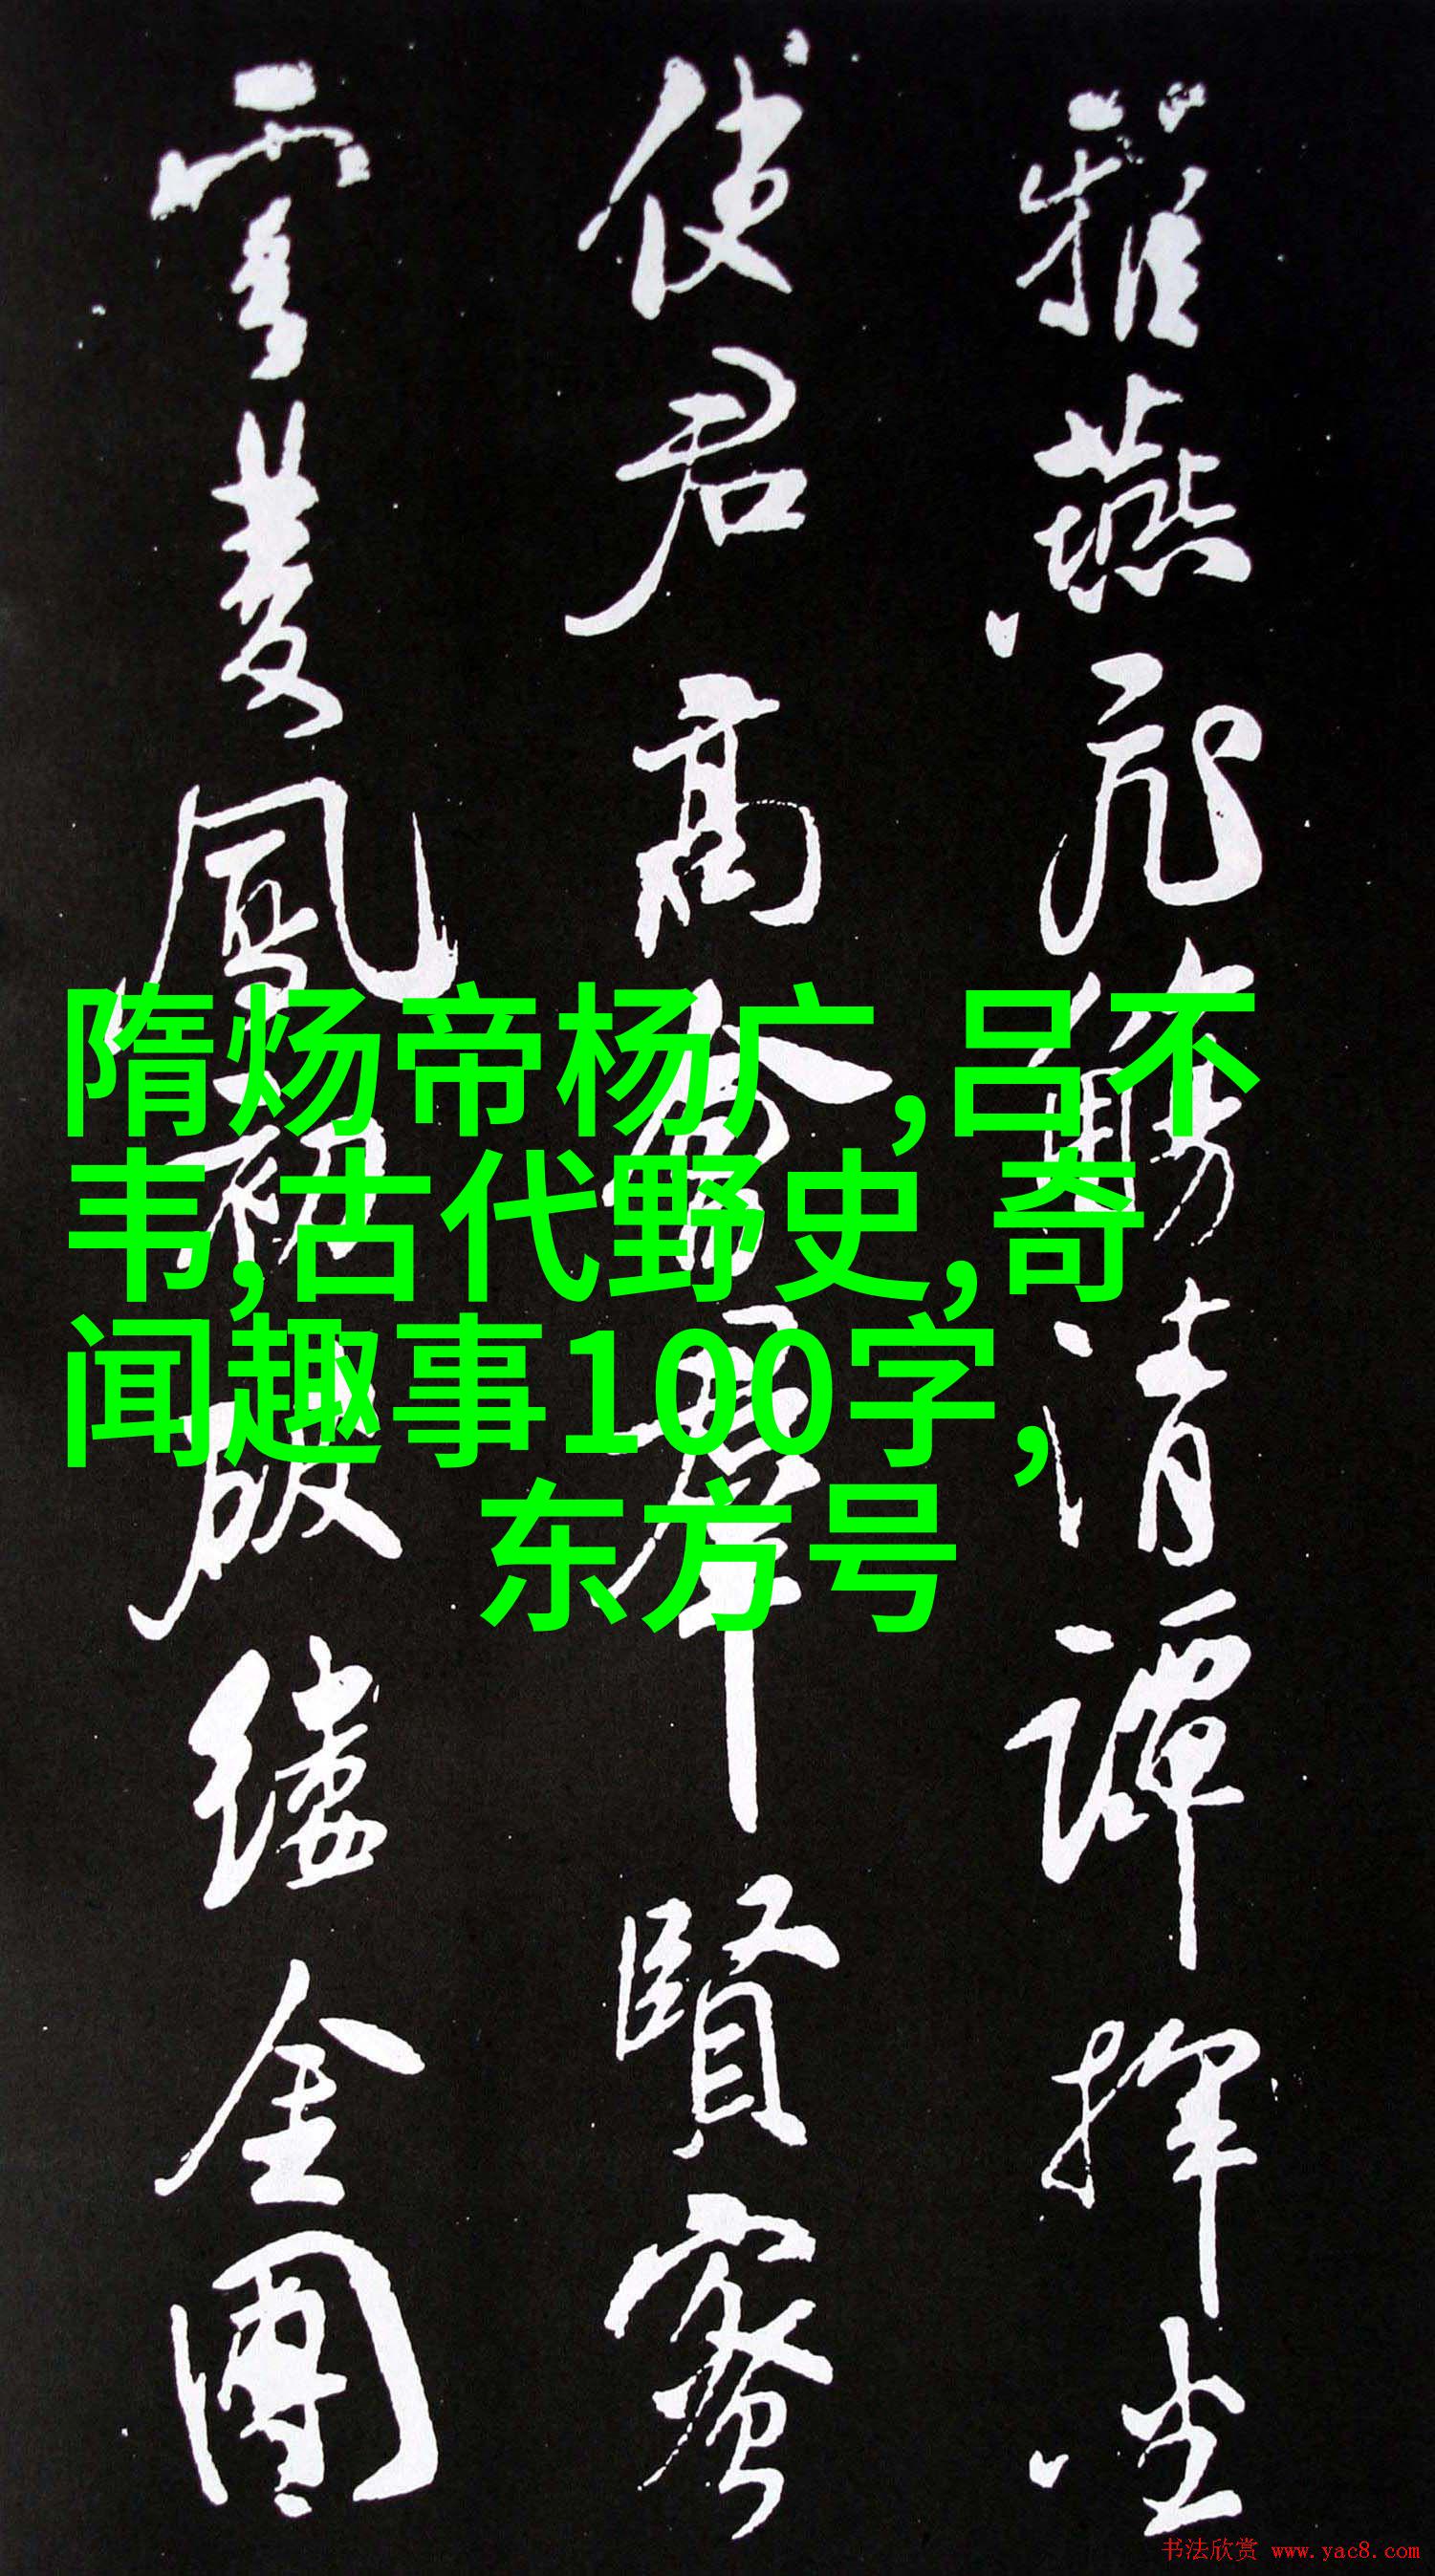 雅燕飛觴清譚揮坐
使君高會羣賢密
雲雙鳳初破縷金團
隋炀帝杨广,吕不
韦,古代野史,奇
闻趣事100字，
东方号
书法欣赏 www.yac8.com